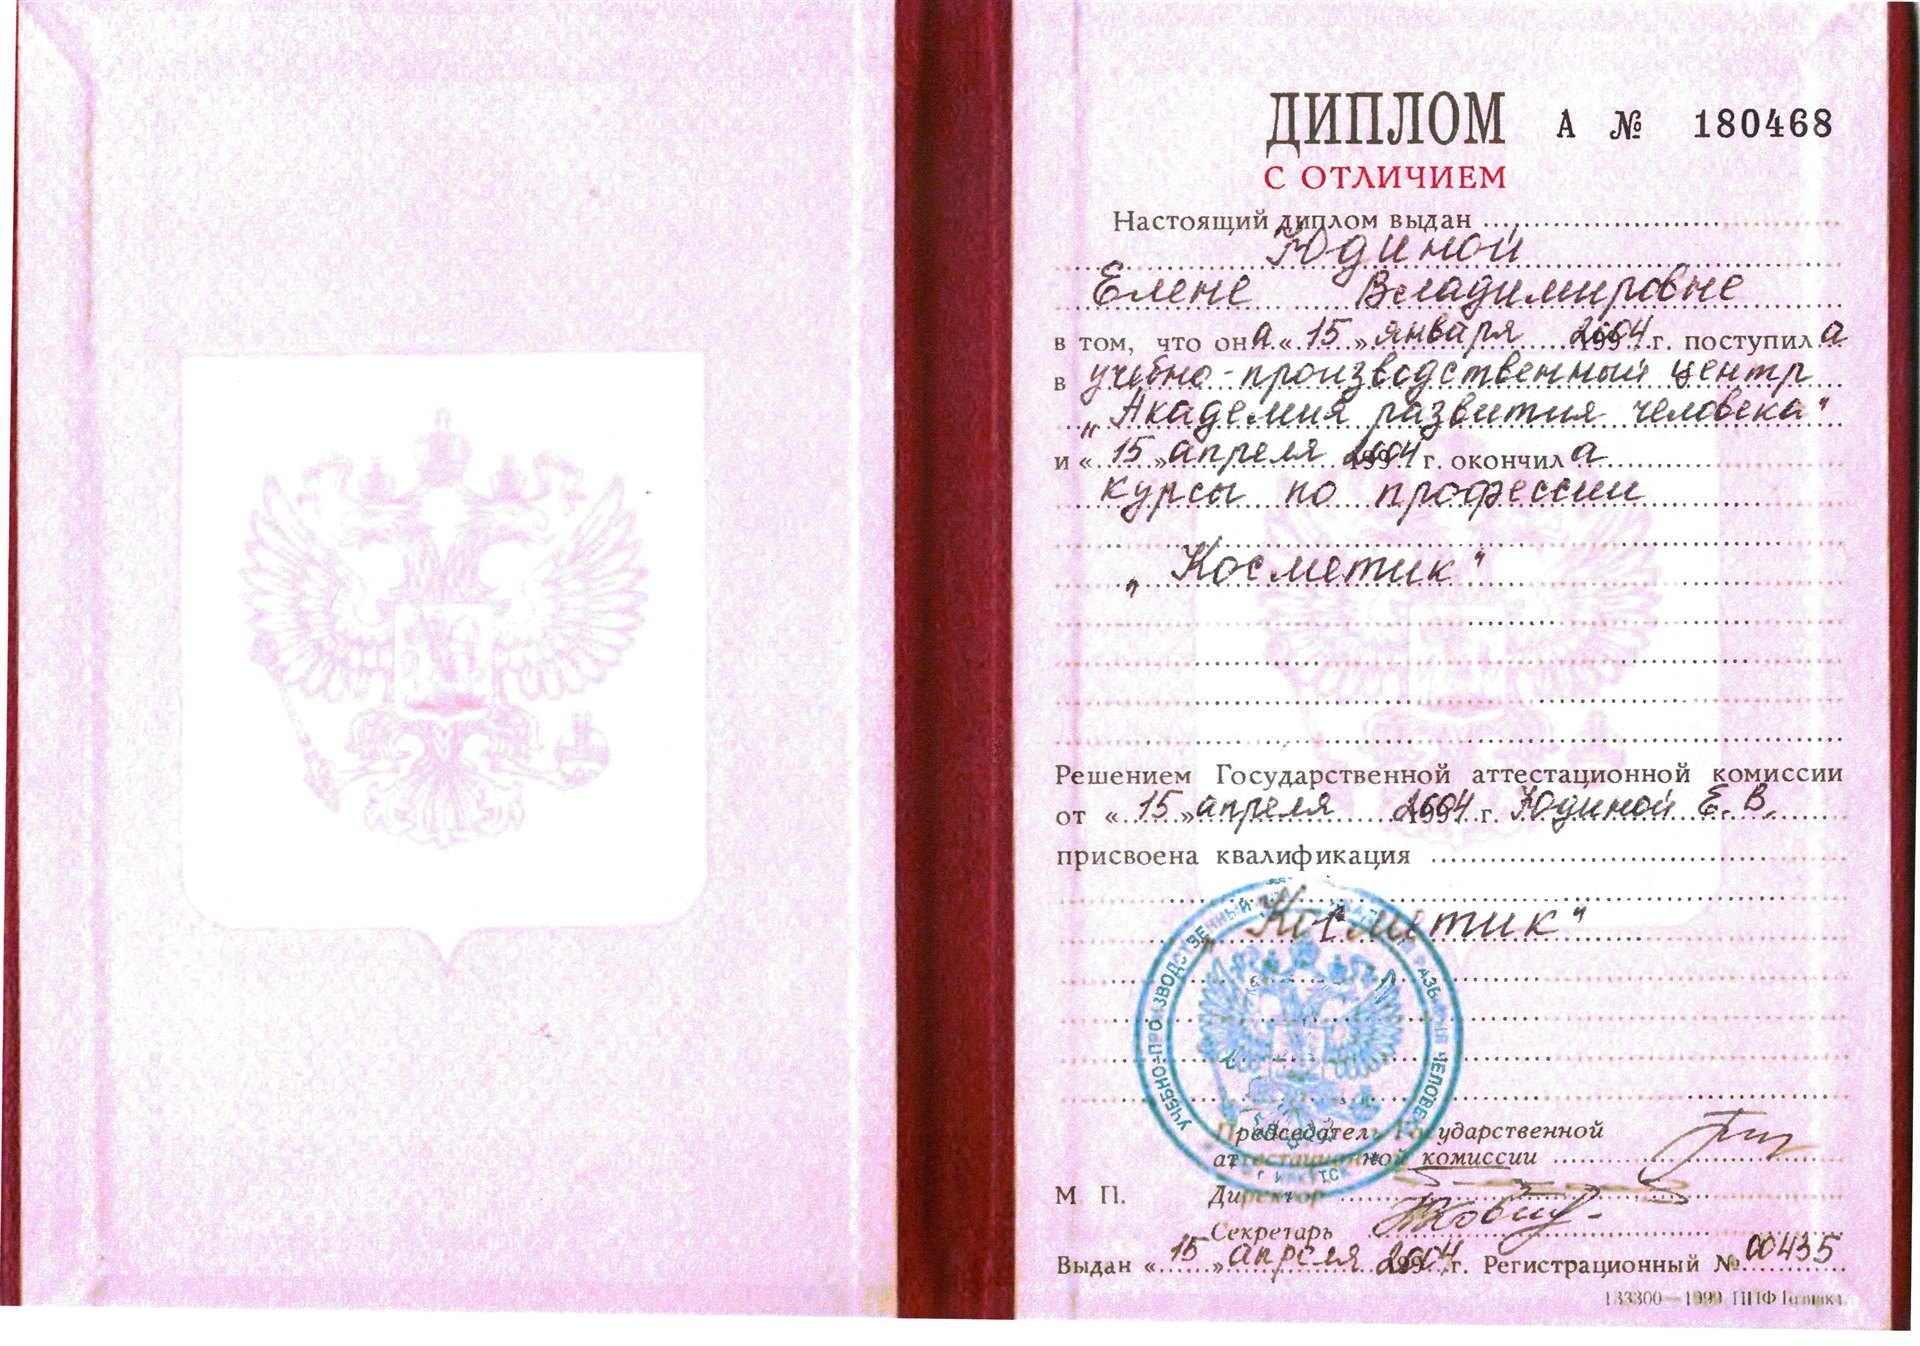 ДИПЛОМ А № 180468
С ОТЛИЧИЕМ
Настоящий диплом выдан
Юдиной
Елене Владимировне
в том, что она «15» января 2004 г. поступила
в учебно-производственный центр
„Академия развития человека"
и «15» апреля 2004 г. окончила
курсы по профессии
„Косметик"
Решением Государственной аттестационной комиссии
от «15» апреля 2004 г. Юдиной Е. В.
присвоена квалификация
„Косметик"
УЧЕБНО-ПРОИЗВОДСТВЕННЫЙ РАЗВИТИЯ ЧЕЛОВЕКА
Председатель Государственной
аттестационной комиссии
М П. Директор
Секретарь
Выдан «15» апреля 2004 г. Регистрационный № 00435
133300—1999 ППФ Гознака